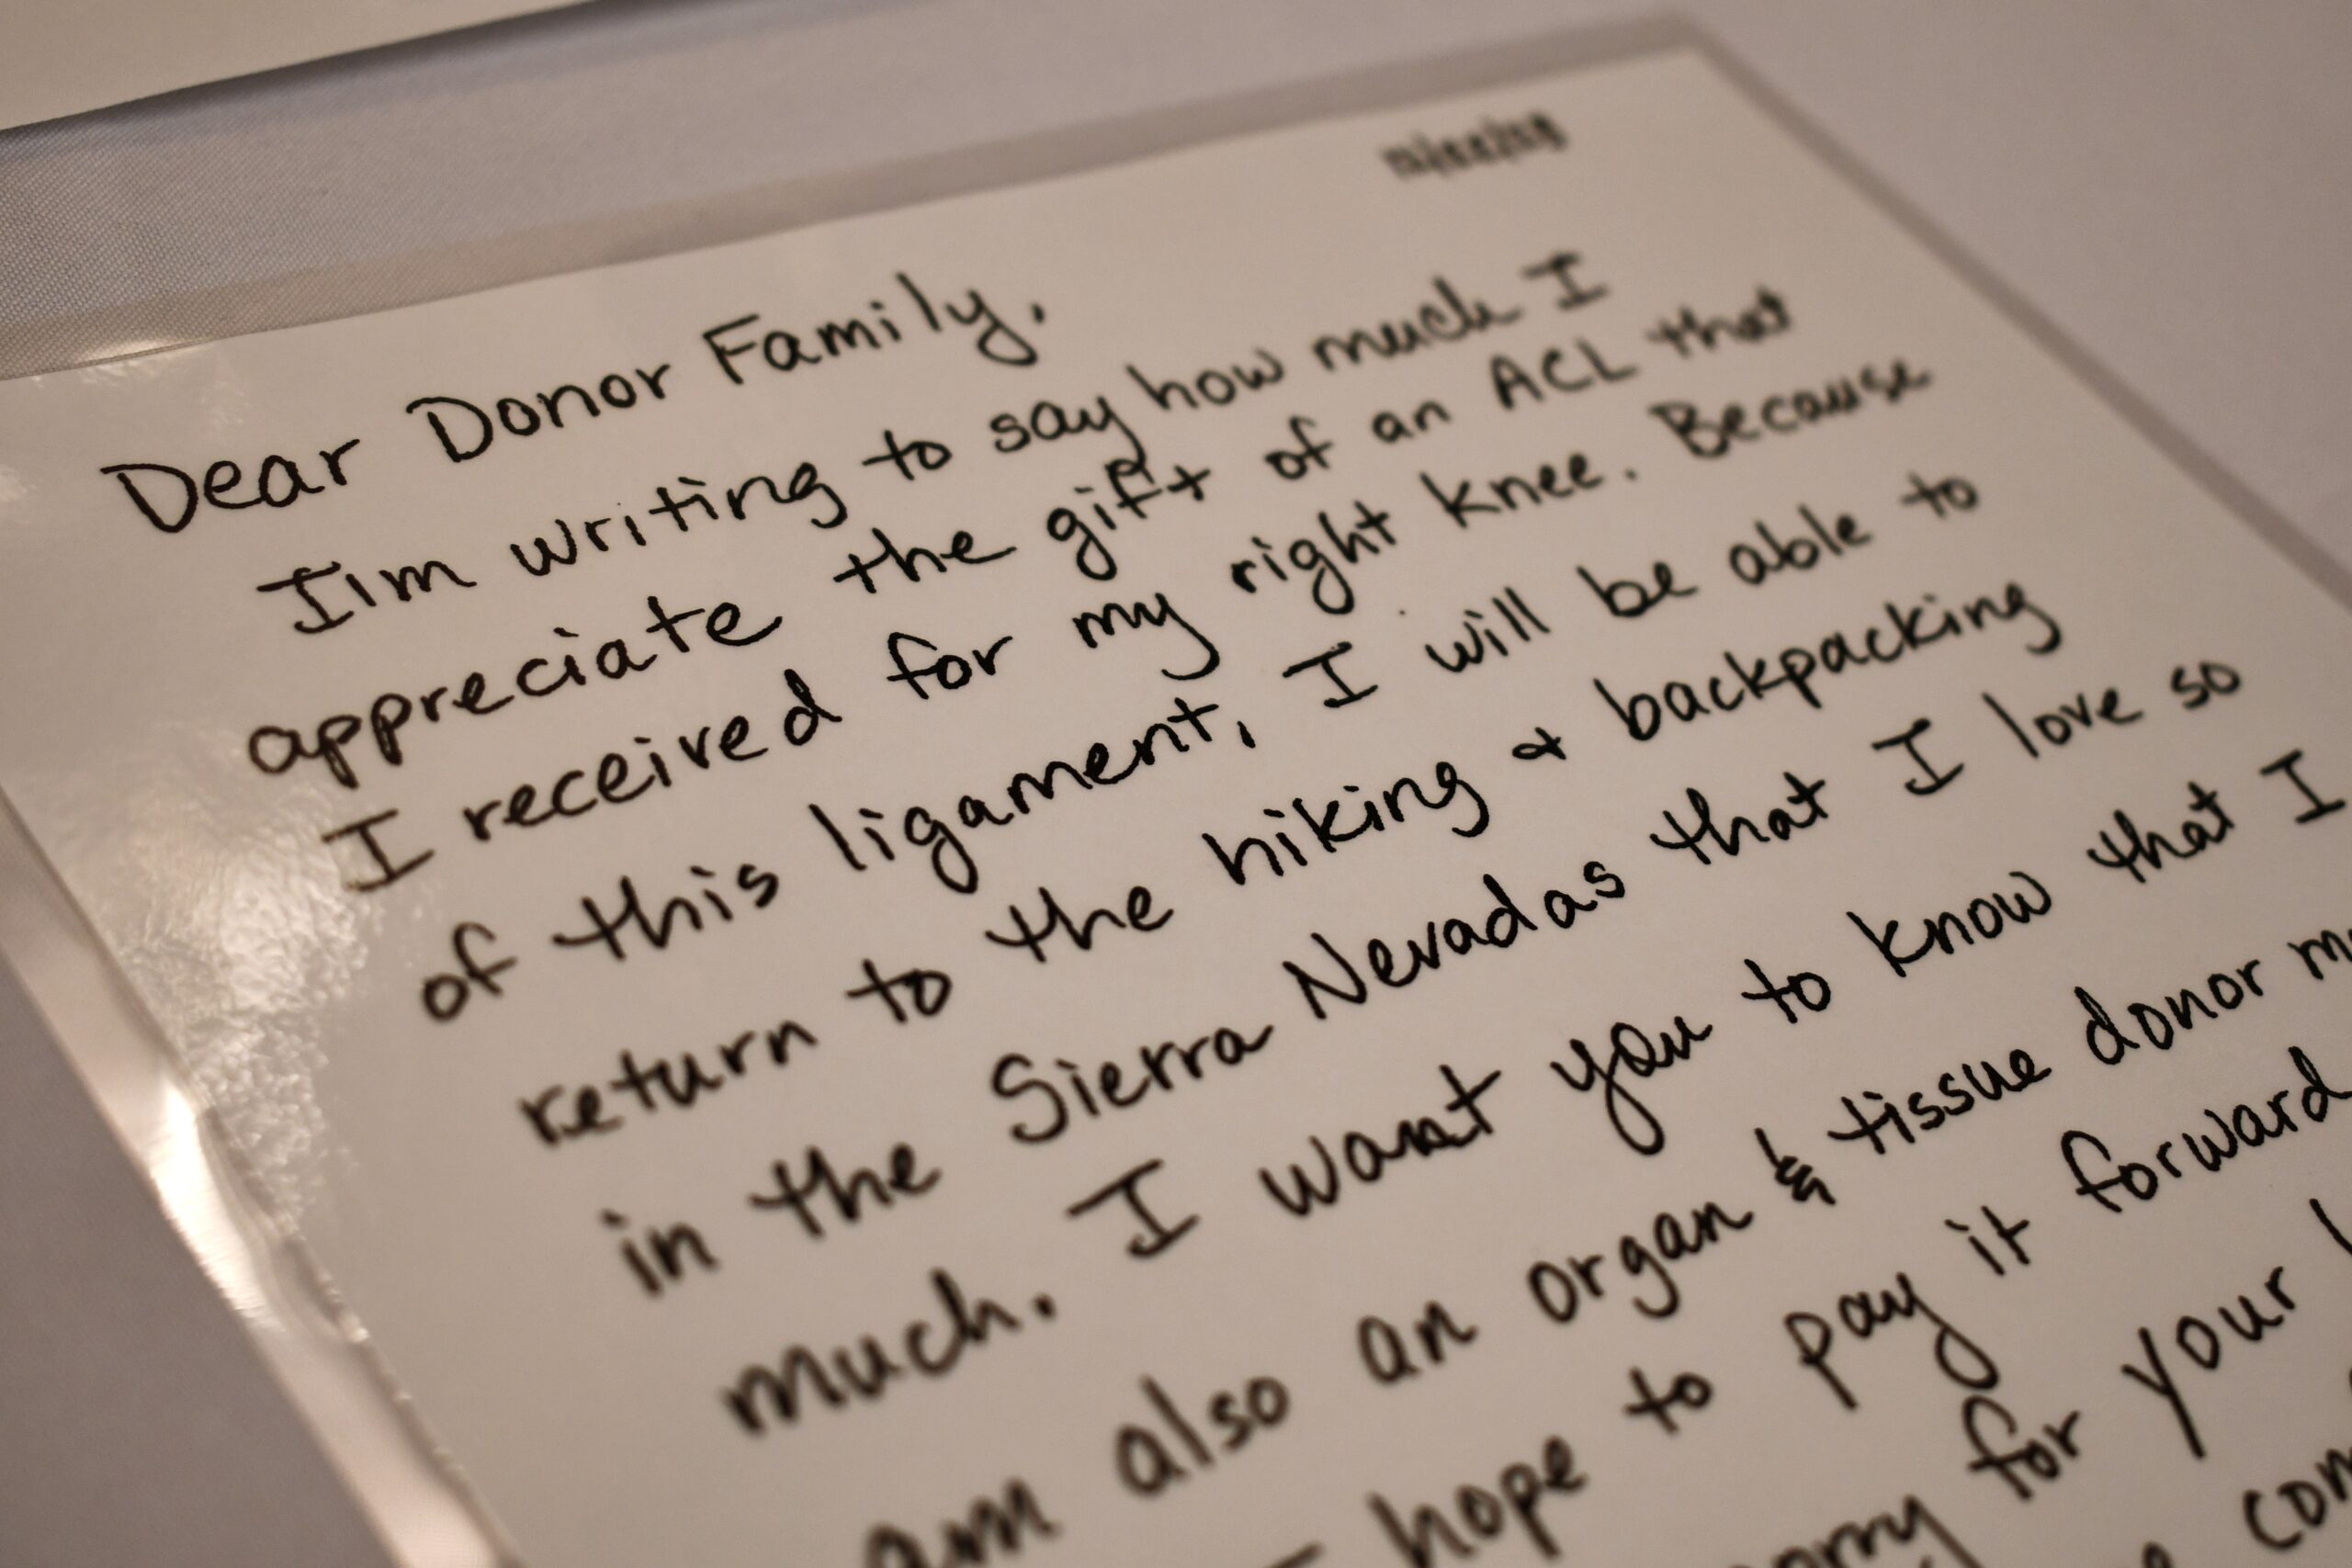 Dear Donor Family,
I'm writing to say how much I
appreciate the gift of an ACL that
I received for my right knee. Because
of this ligament, I will be able to
return to the hiking & backpacking
in the Sierra Nevadas that I love so
much. I want you to know that I
am also an organ & tissue donor
hope to pay it forward
for your